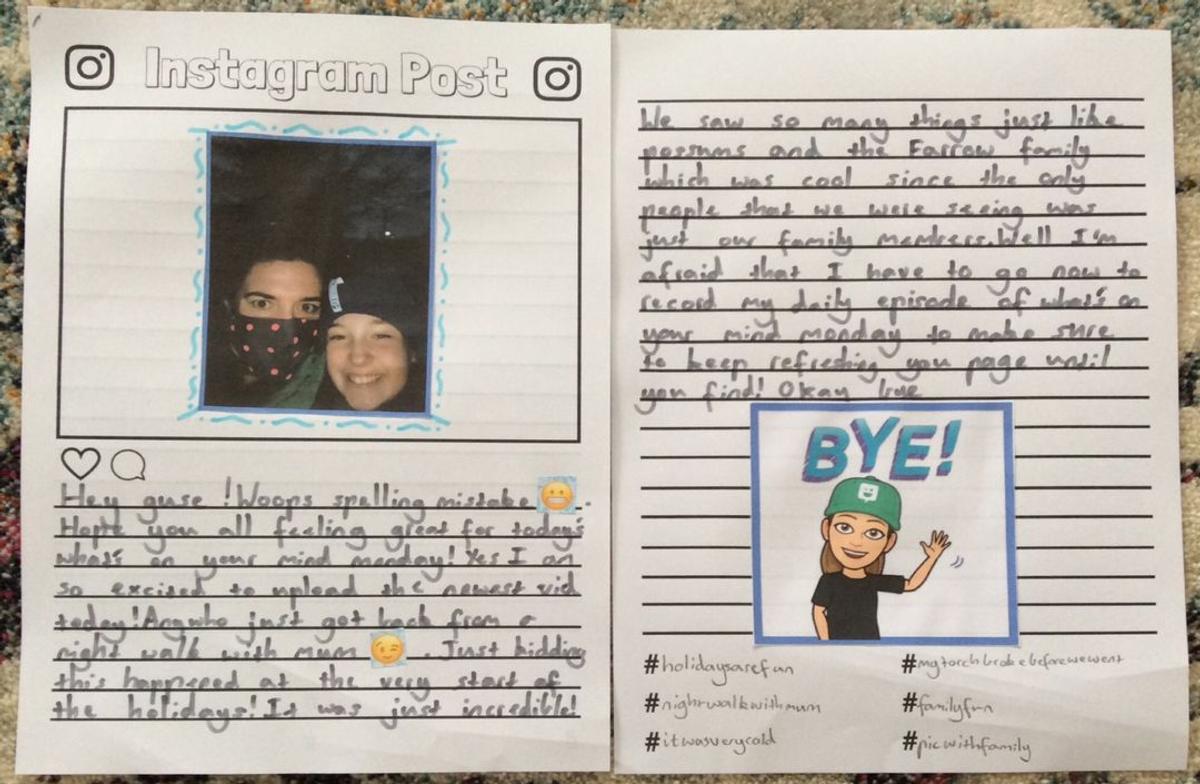 Instagram Post
Hey guse ! Woops spelling mistake 😬.
Hope you all feeling great for today's
what's on your mind monday! Yes I am
so excited to upload the newest vid
today! Anywho just got back from a
night walk with mum 😉. Just kidding
this happened at the very start of
the holidays! It was just incredible!
We saw so many things just like
possums and the Farrow family
which was cool since the only
people that we were seeing was
just our family members. Well I'm
afraid that I have to go now to
record my daily episode of what's on
your mind monday to make sure
to keep refreshing you page until
you find! Okay bye
BYE!
#holidaysarefun
#mytorchbrokebeforewewent
#nightwalkwithmum
#familyfun
#itwasverycold
#picwithfamily